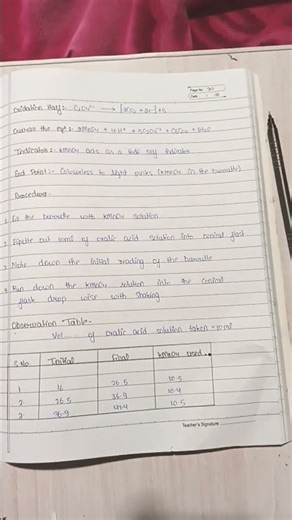 Page No.
Date
Oxidation Half:- C₂O₄²⁻ → [2CO₂ + 2e⁻] × 5
Overall the eqⁿ:- 2MnO₄ + 16H⁺ +
Indicator:- KMnO₄ acts as a self indicator
End Point:- Colourless to light pink (KMnO₄ in the burette)
Procedure-
1. Fill the burette with KMnO₄ solution
2. Pipette out 10ml of oxalic acid solution into conical flask
3. Note down the initial reading of the burette
4. Run down the KMnO₄ solution into the conical
flask drop wise with shaking
Observation Table-
Vol... of oxalic acid solution taken = 10ml
S.No Initial Final KMnO₄ used
1 16 26.5 10.5
2 26.5 36.9 10.4
3 36.9 47.4 10.5
Teacher's Signature